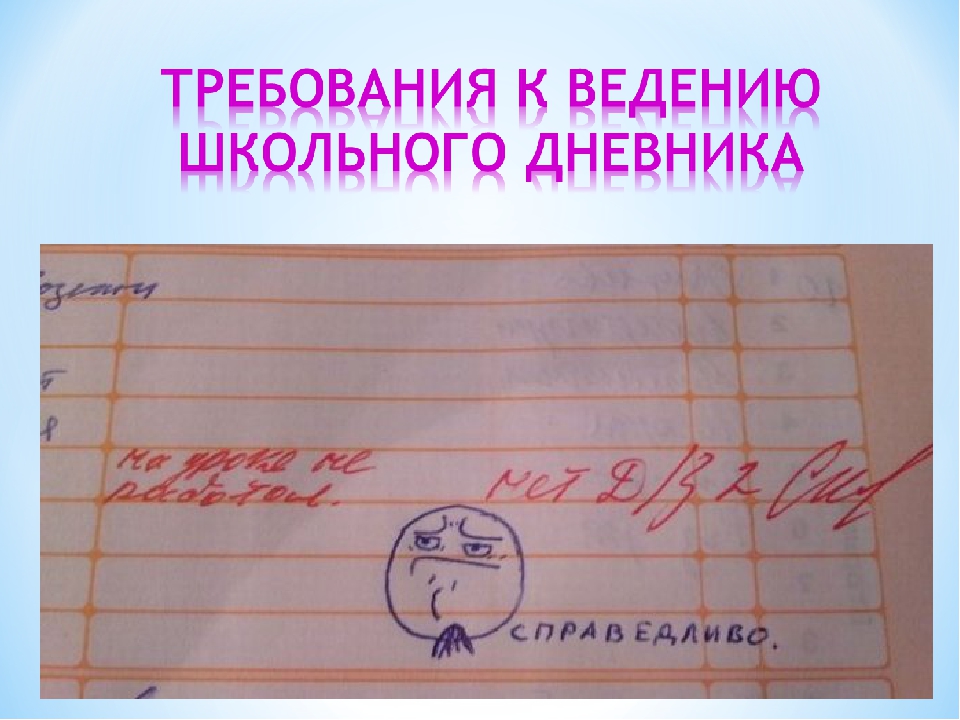 ТРЕБОВАНИЯ К ВЕДЕНИЮ
ШКОЛЬНОГО ДНЕВНИКА
на уроке не
работал.
нет Д/З 2
СПРАВЕДЛИВО.